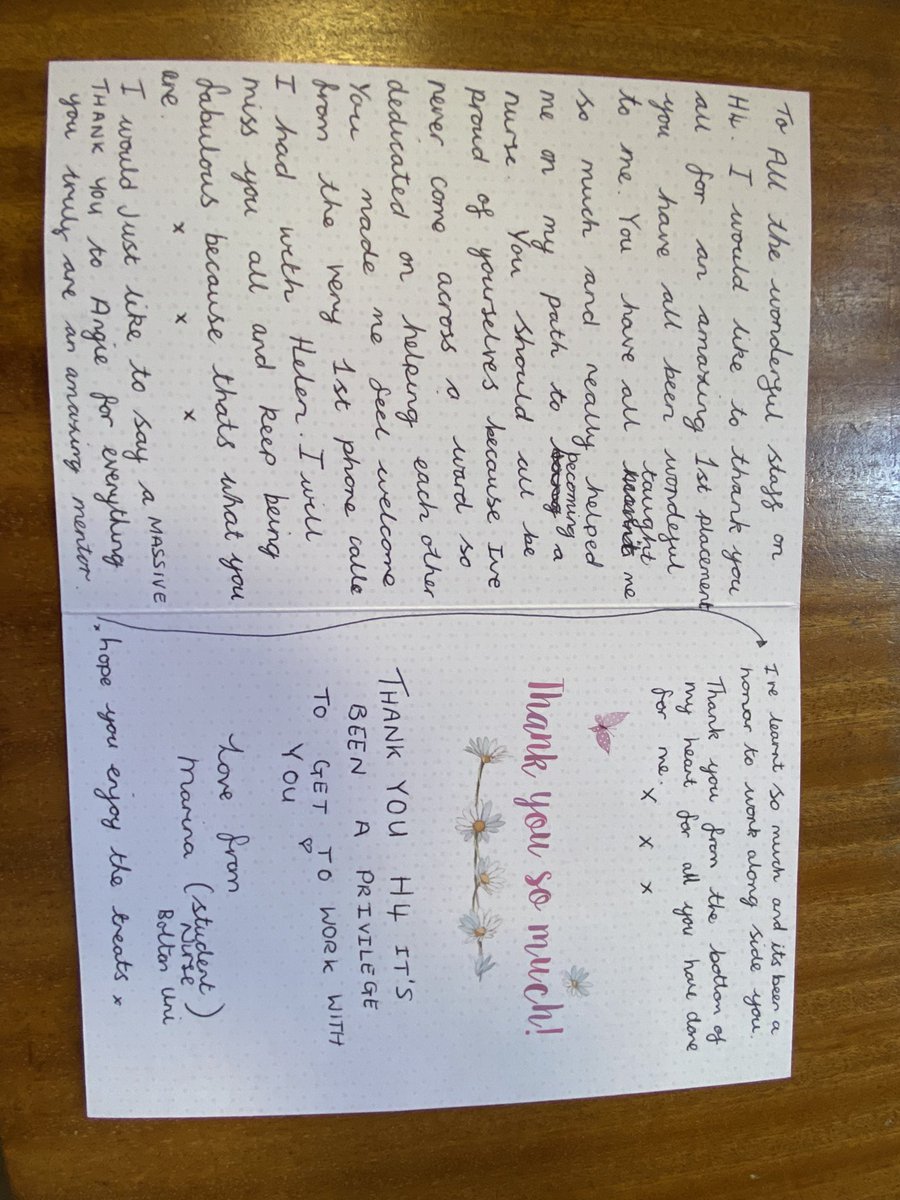 To All the wonderful staff on
H4. I would like to thank you
all for an amazing 1st placement
you have all been wonderful
to me. You have all taught me
so much and really helped
me on my path to becoming a
nurse. You should all be
proud of yourselves because Ive
never come across a ward so
dedicated on helping each other
You made me feel welcome
from the very 1st phone calle
I had with Helen. I will
miss you all and keep being
fabulous because thats what you
are. x x x
I would Just like to say a MASSIVE
THANK YOU to Angie for everything
you truly are an amazing mentor.
I've learnt so much and its been a
honor to work along side you.
Thank you from the bottom of
my heart for all you have done
for me. x x x
Thank you so much!
THANK YOU H4 IT'S
BEEN A PRIVILEGE
TO GET TO WORK WITH
YOU
Love from
Marina (student
Nurse)
Bolton uni
hope you enjoy the treats x